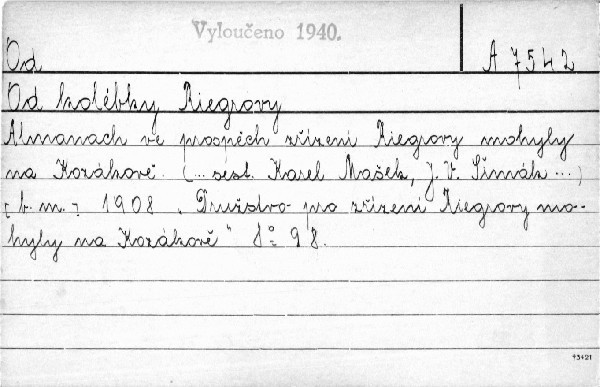 Vyloučeno 1940.
Od A 7542
Od kolébky Riegrovy
Almanach ve prospěch zřízení Riegrovy mohyly
na Kozákově. (... sest. Karel Mašek, J. V. Šimák ...)
[b. m.] 1908 „Družstvo pro zřízení Riegrovy mo-
hyly na Kozákově" 8° 98.
43421